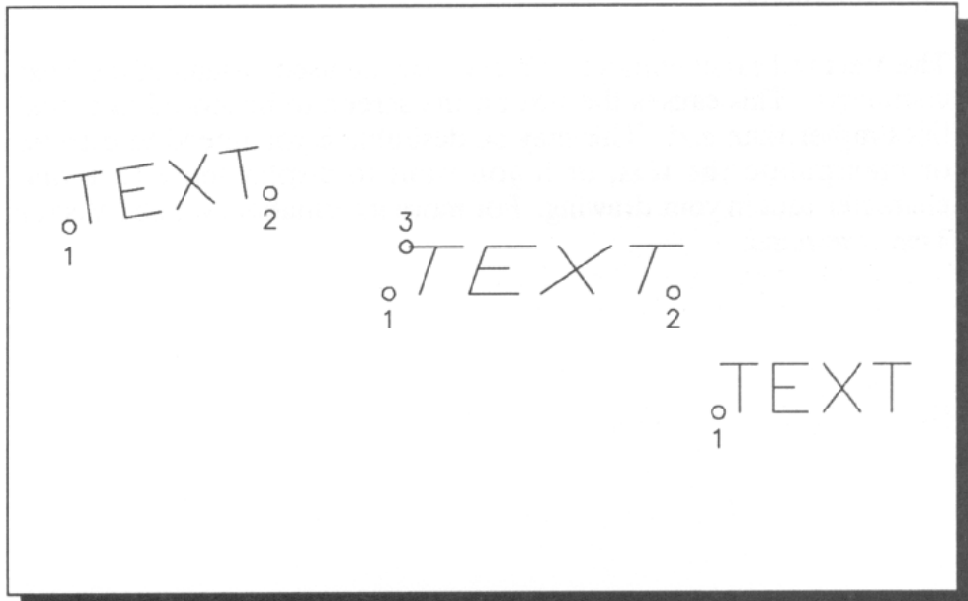 TEXT
1 2
3
TEXT
1 2
TEXT
1